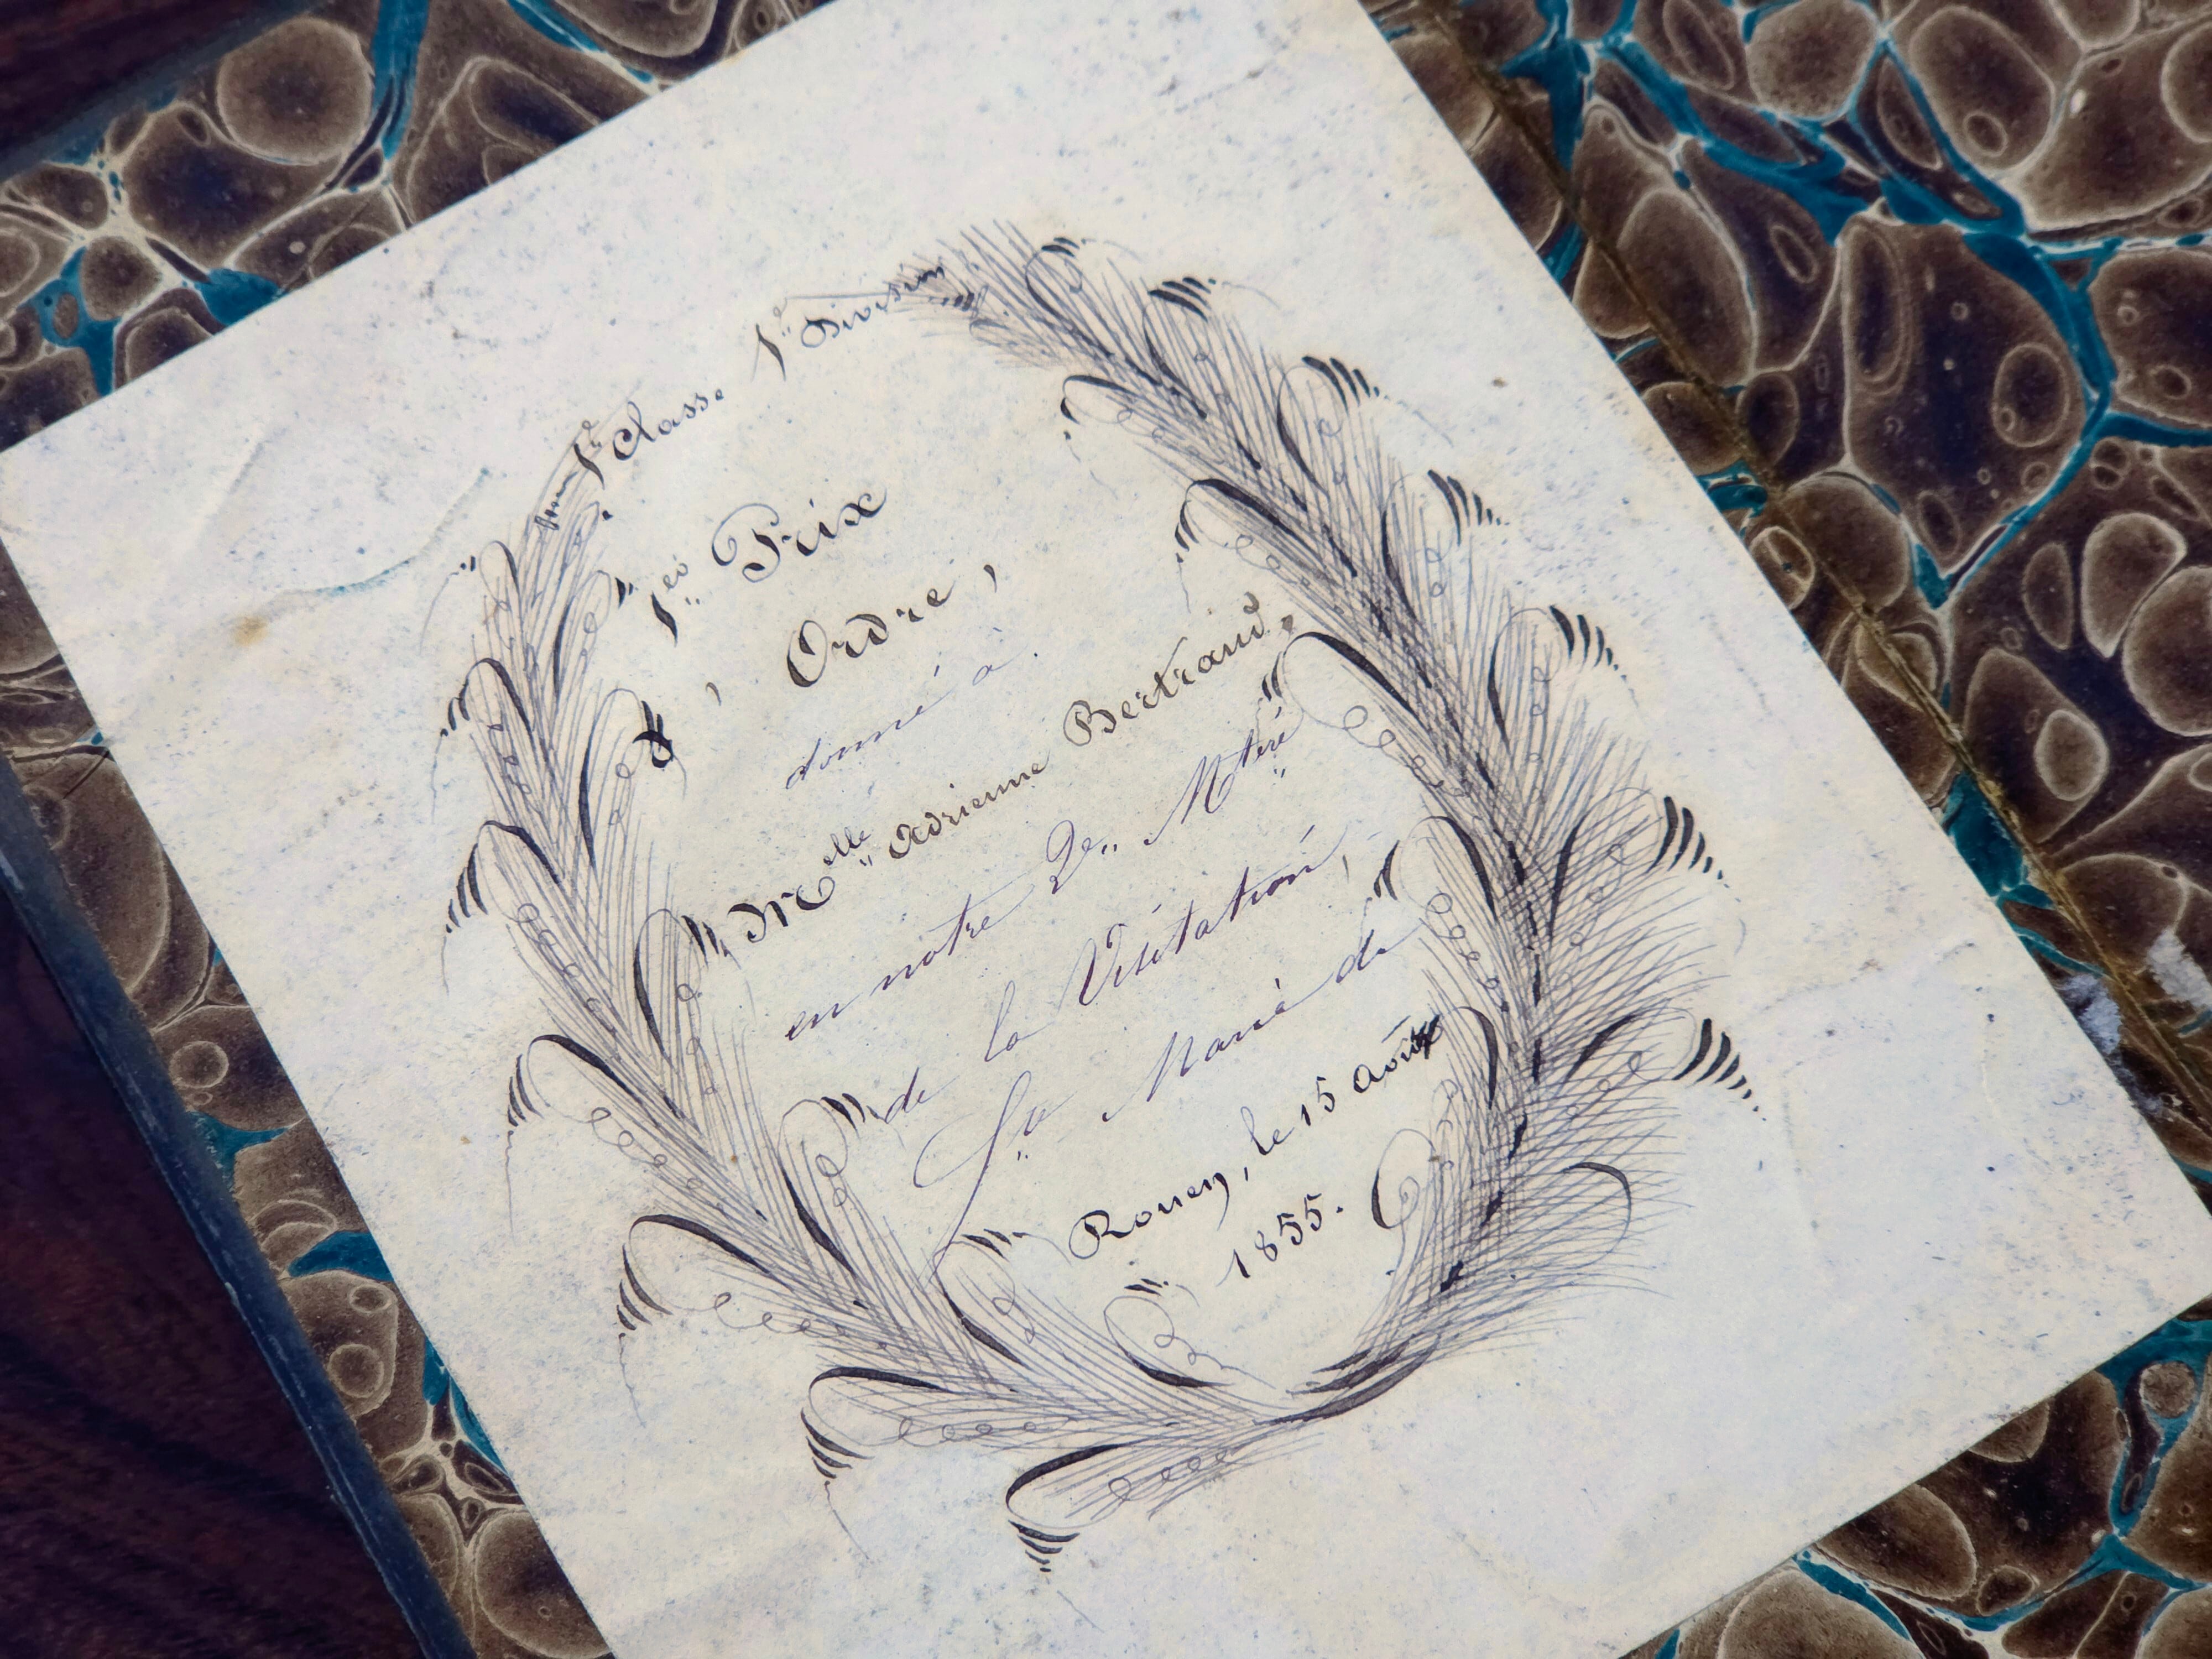 1re Classe. 1e Division
1er Prix
d'Ordre,
donné à
Melle Adrienne Bertrand,
en notre 2e Mtère
de la Visitation,
de
Sa Marie de
Rouen, le 15 Août
1855.